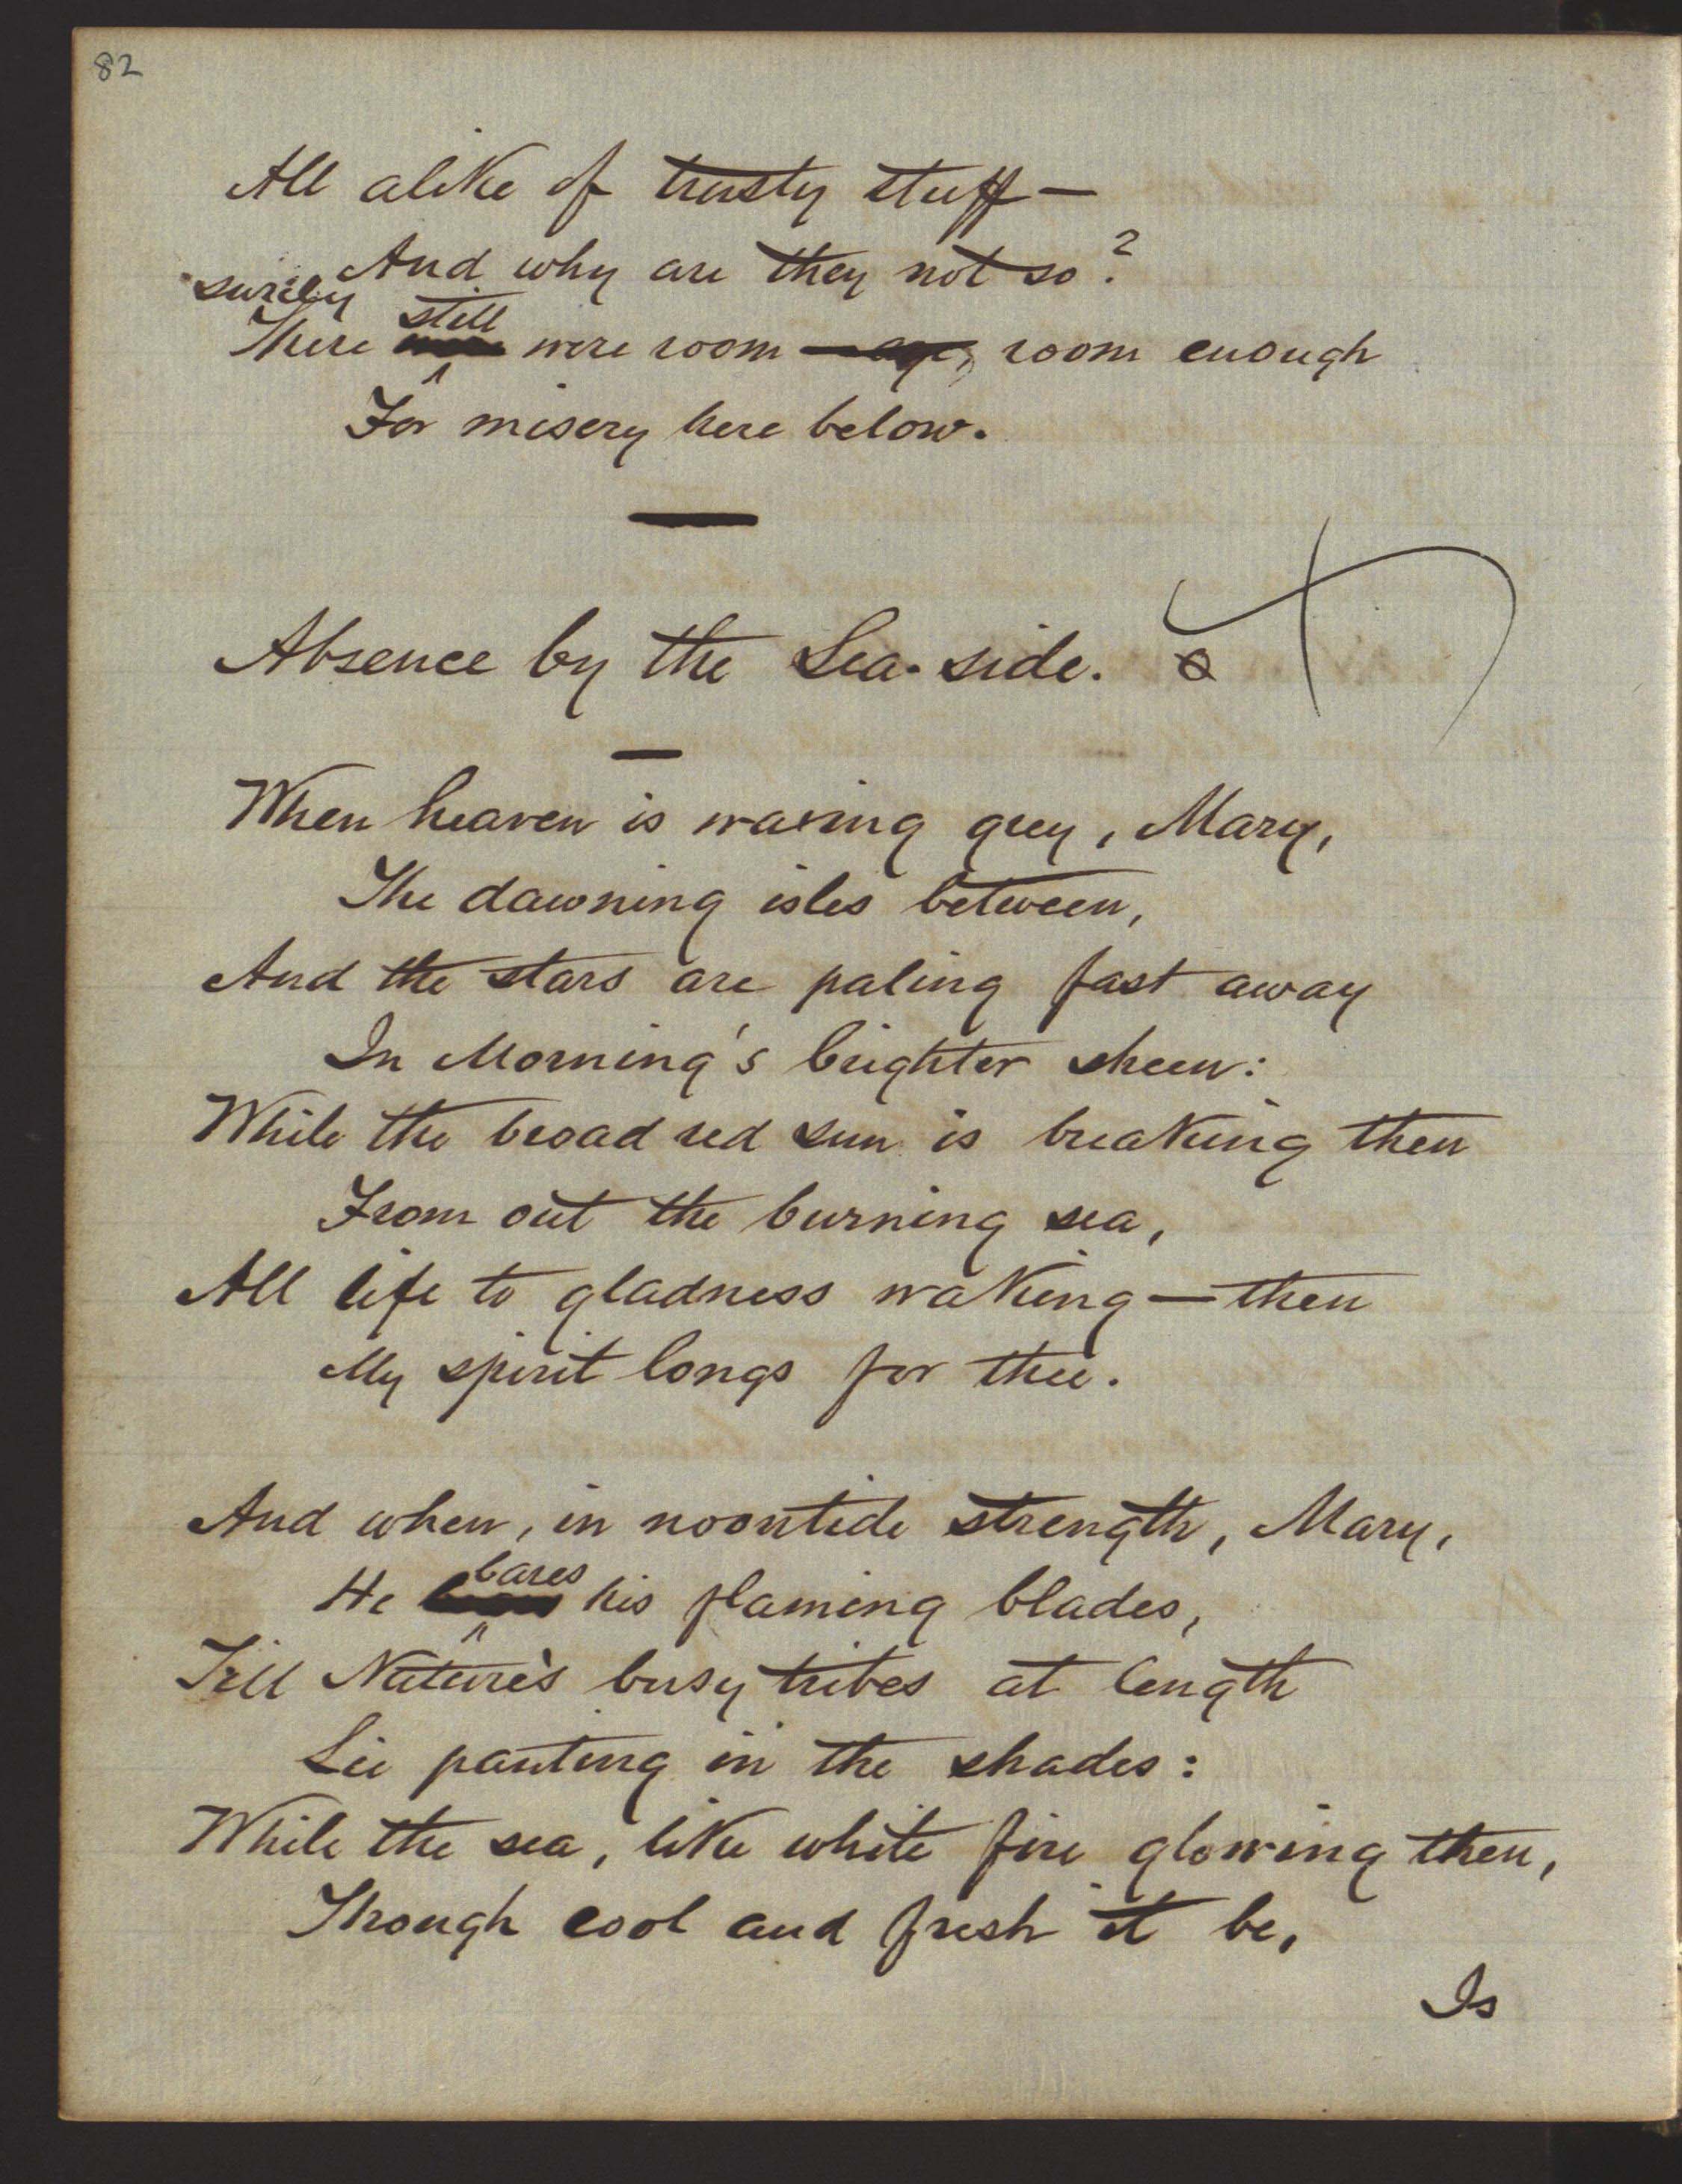 82
All alike of trusty stuff —
And why are they not so?
surely
still
There were room room enough
For misery here below.
Absence by the Sea-side.
When heaven is waxing grey, Mary,
The dawning isles between,
And the stars are paling fast away
In Morning's brighter sheen:
While the broad red sun is breaking then
From out the burning sea,
All life to gladness waking — then
My spirit longs for thee.
And when, in noontide strength, Mary,
bares
He his flaming blades,
Till Nature's busy tribes at length
Lie panting in the shades:
While the sea, like white fire glowing then,
Though cool and fresh it be,
Is